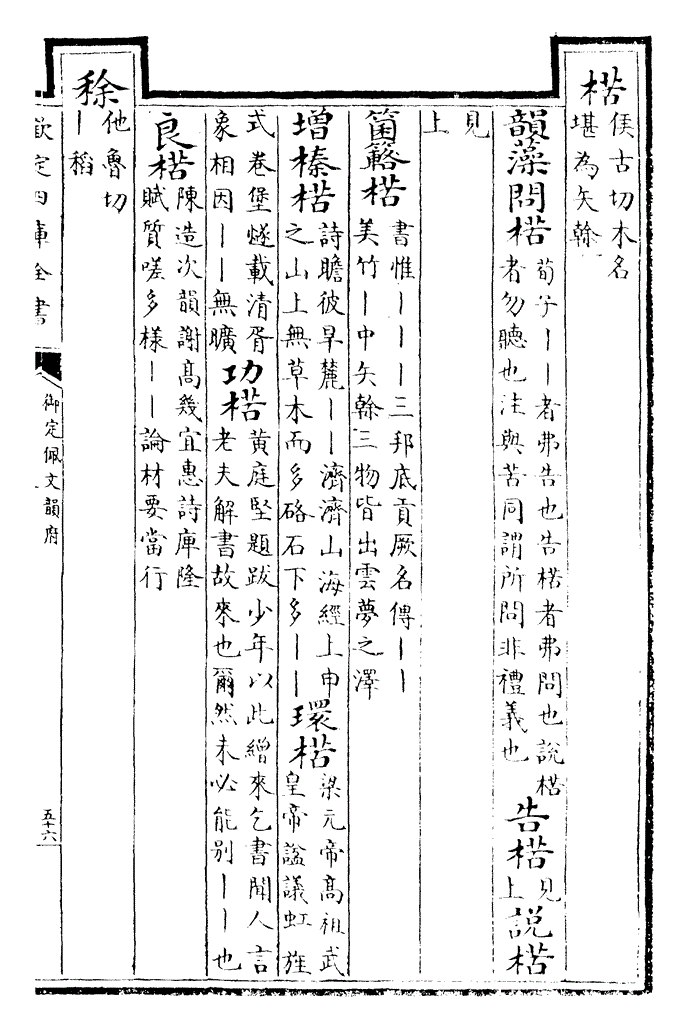 楛
侯古切木名
堪為矢榦
韻藻問楛
荀子丨丨者弗告也告楛者弗問也説楛
者勿聽也注與苦同謂所問非禮義也
告楛
見
上
説楛
見
上
箘簵楛
書惟丨丨丨三邦底貢厥名傳丨丨
美竹丨中矢榦三物皆出雲夢之澤
増榛楛
詩瞻彼旱麓丨丨濟濟山海經上申
之山上無草木而多硌石下多丨丨
環楛
梁元帝高祖武
皇帝諡議虹旌
式卷堡燧載清胥
象相因丨丨無曠
功楛
黄庭堅題跋少年以此繒來乞書聞人言
老夫解書故來也爾然未必能别丨丨也
良楛
陳造次韻謝高幾宜惠詩庫隆
賦質嗟多様丨丨論材要當行
稌
他魯切
丨稻
欽定四庫全書
御定佩文韻府
五十六